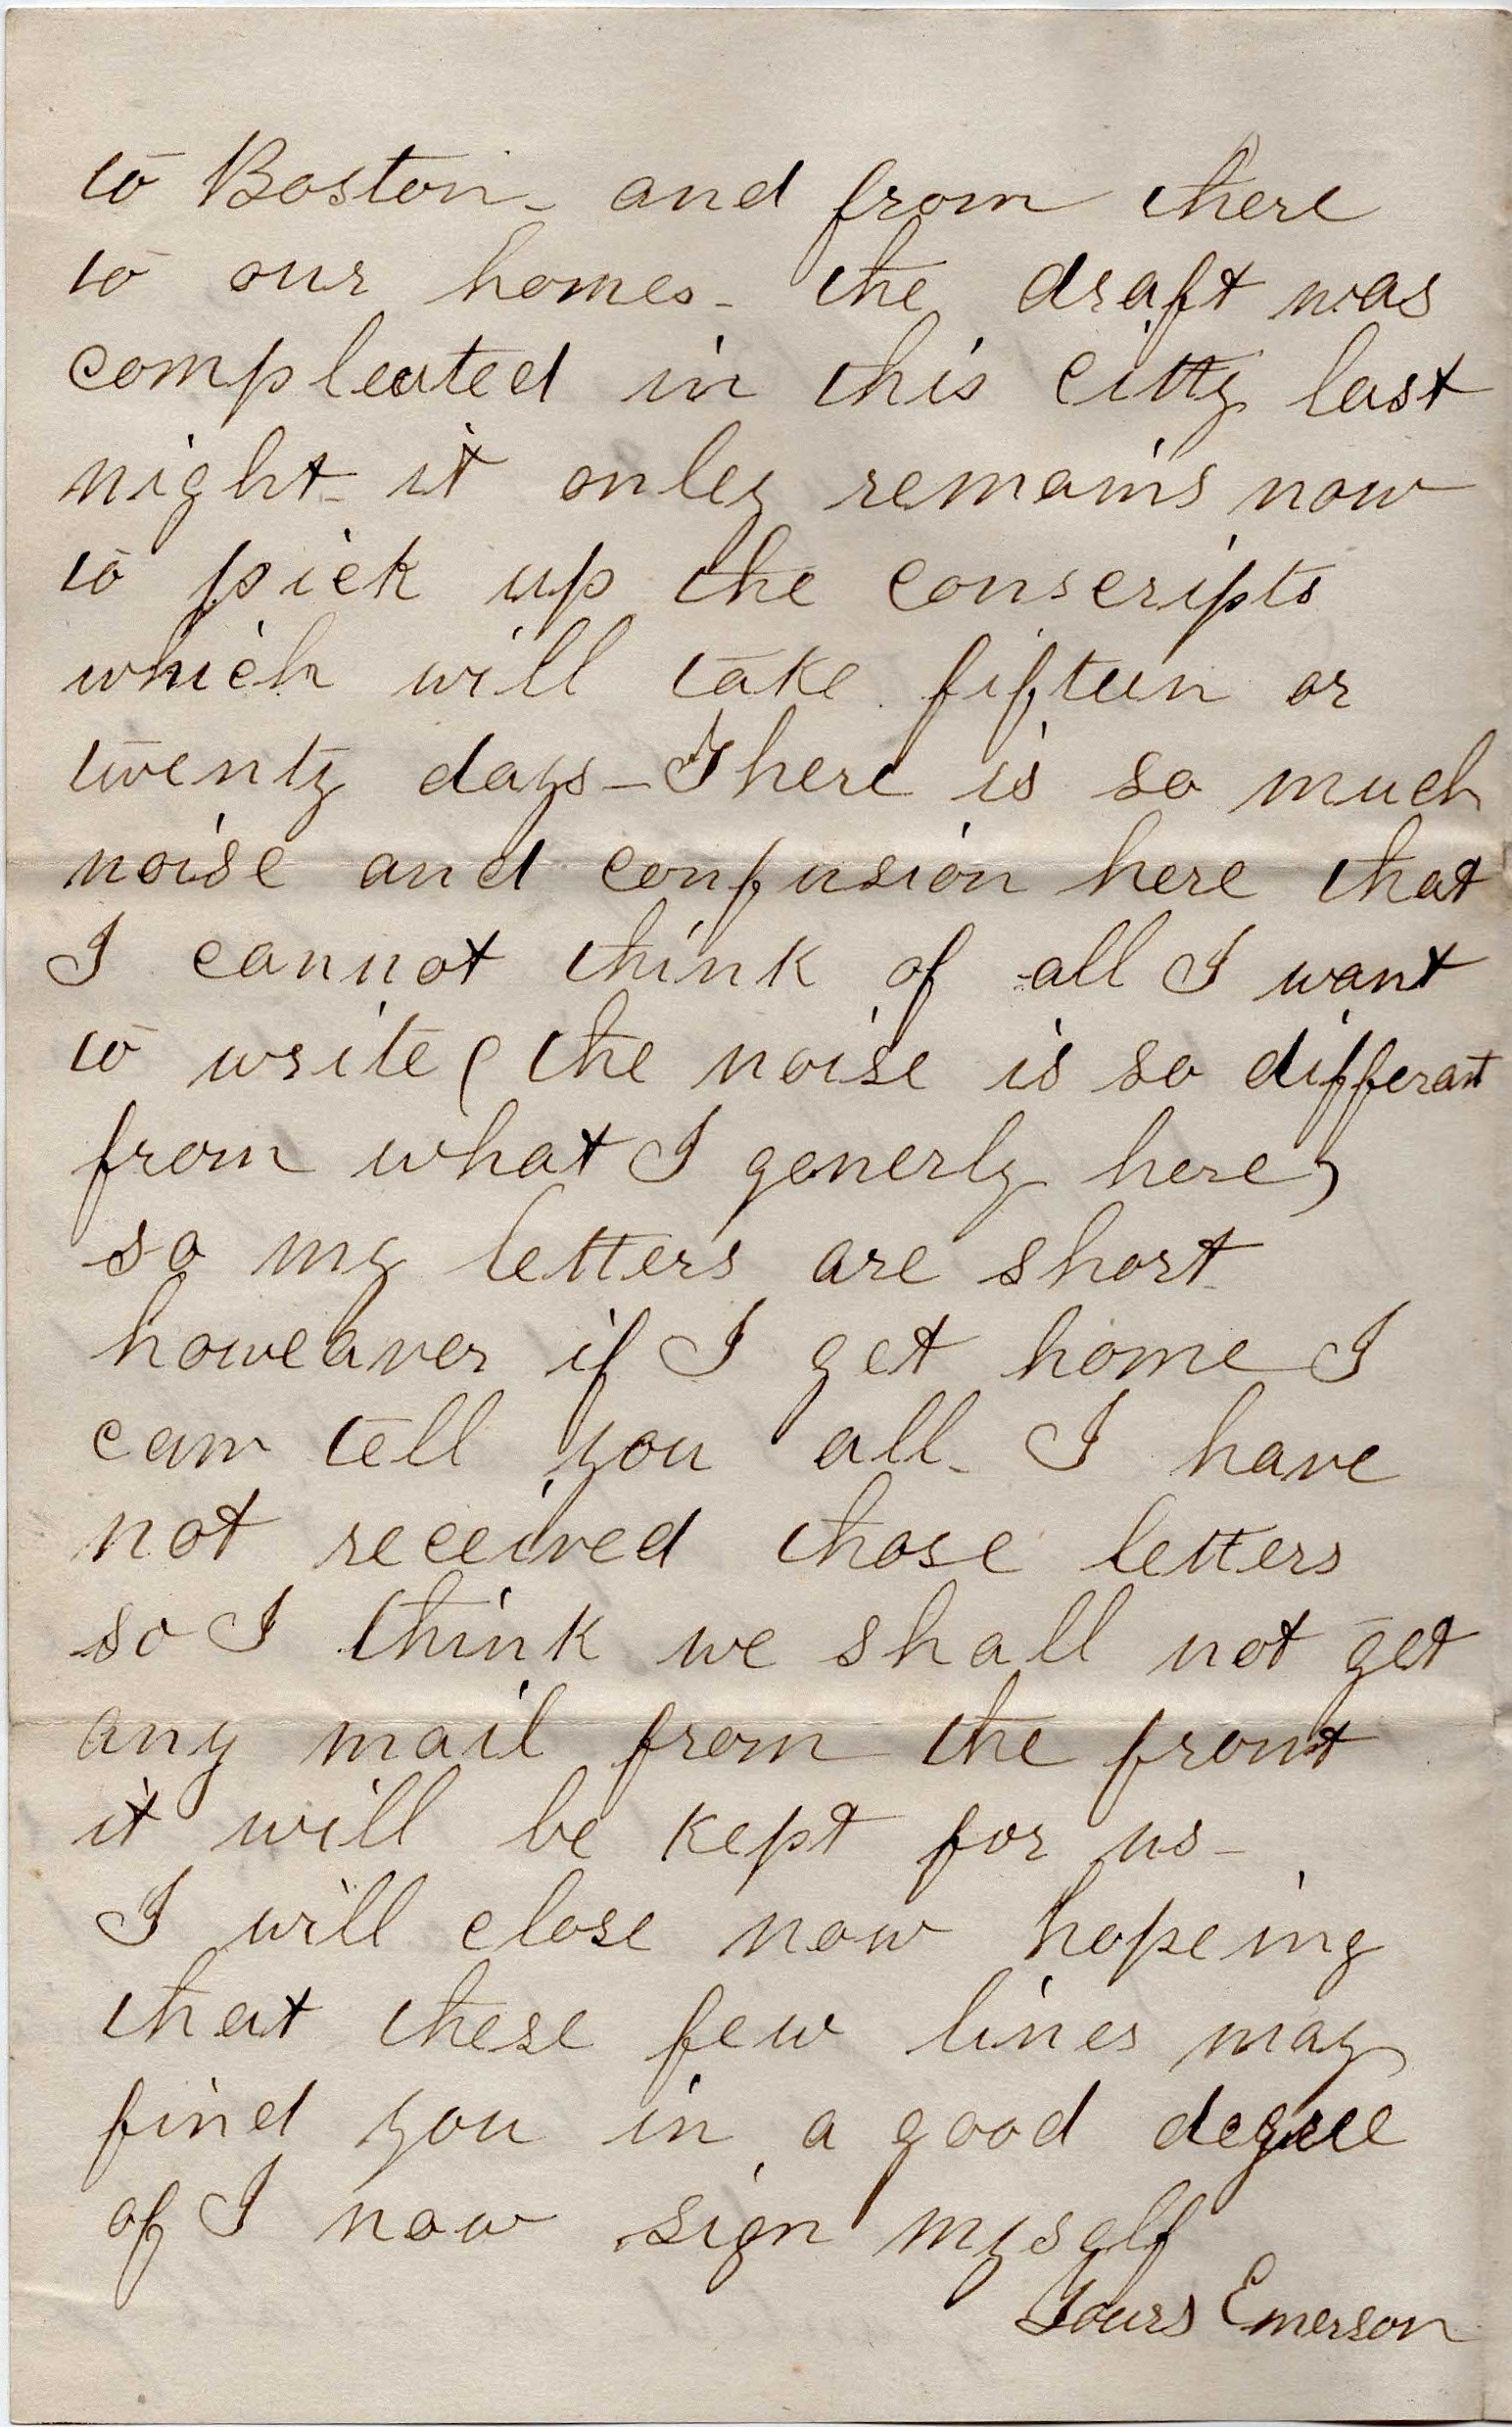 to Boston - and from there
to our homes - the draft was
compleated in this citty last
night - it onley remains now
to pick up the conscripts
which will take fifteen or
twenty days - There is so much
noise and confusion here that
I cannot think of all I want
to write ( the noise is so differant
from what I generly here )
so my letters are short
howeaver if I get home I
can tell you all - I have
not received those letters
so I think we shall not get
any mail from the front
it will be kept for us -
I will close now hopeing
that these few lines may
find you in a good degree
of I now sign myself
Yours Emerson